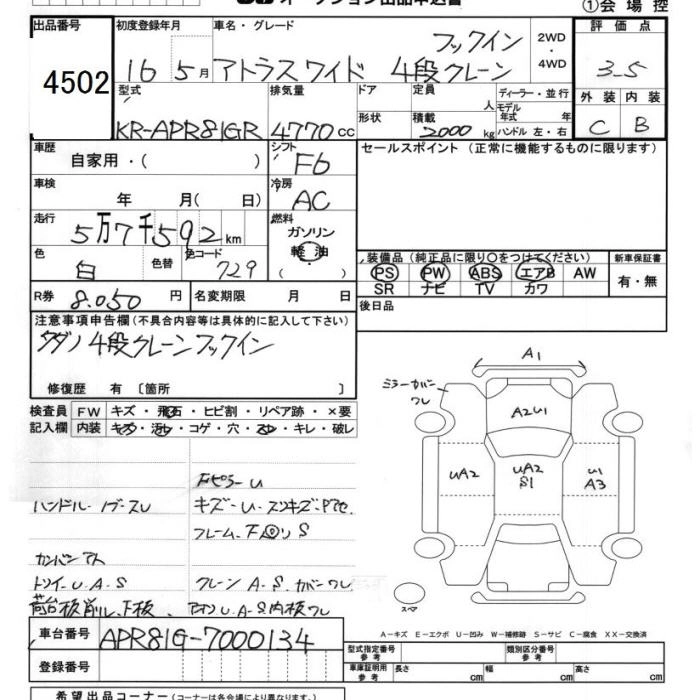 オークション出品申込書 ①会場控
出品番号 4502
初度登録年月 16 5月
車名・グレード フックイン アトラスワイド 4段クレーン
2WD・4WD
評価点 3-5
外装 C 内装 B
型式 KR-APR81GR
排気量 4770cc
ドア 形状
定員 人
積載 2000kg
ディーラー・並行
モデル年式 年
ハンドル 左・右
車歴 自家用・( )
シフト F6
セールスポイント (正常に機能するものに限ります)
車検 年 月( 日)
冷房 AC
走行 5万7千592km
燃料 ガソリン 軽油 ( ・ )
色 白 色替 色コード 729
装備品 (純正品に限り○をつけてください)
PS PW ABS エアB AW
SR ナビ TV カワ
新車保証書 有・無
R券 8.050円 名変期限 月 日
後日品
注意事項申告欄(不具合内容等は具体的に記入して下さい)
タダノ 4段クレーンフックイン
修復歴 有 〔箇所 〕
検査員記入欄
FW キズ・飛石・ヒビ割・リペア跡・×要
内装 キズ・汚レ・コゲ・穴・スレ・キレ・破レ
FピラーU
ハンドル・ノブ・スレ
キズ・U・スリキズ・
フレーム、
S
カンバンアト
トリイ・U.A.S
クレーン A.S.カバーワレ
荷台板削レ、下板、
U.A-S内板ワレ
A1
ミラーカバーワレ
A2U1
UA2
UA2 S1
U1 A3
スペア
A-キズ E-エクボ U-凹み W-補修跡 S-サビ C-腐食 XX-交換済
車台番号 APR81G-7000134
登録番号
型式指定番号 参考
類別区分番号 参考
車庫証明用 参考 長さ cm 幅 cm 高さ cm
希望出品コーナー(コーナーは各会場により異なります。)